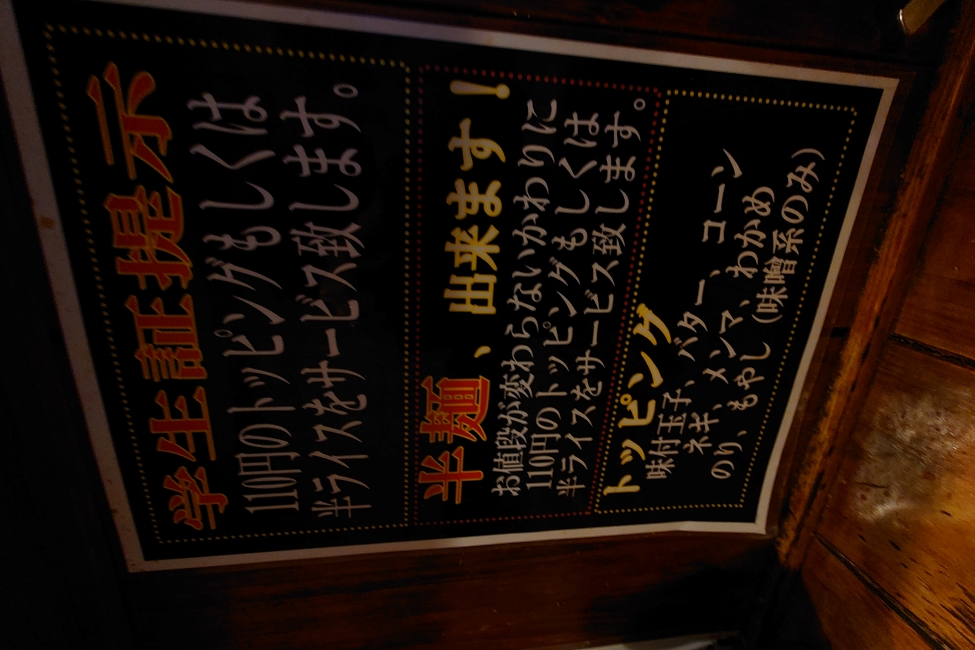 学生証提示
110円のトッピングもしくは
半ライスをサービス致します。
半麺、出来ます!
お値段が変わらないかわりに
110円のトッピングもしくは
半ライスをサービス致します。
トッピング
味付玉子、バター、コーン
ネギ、メンマ、わかめ
のり、もやし(味噌系のみ)